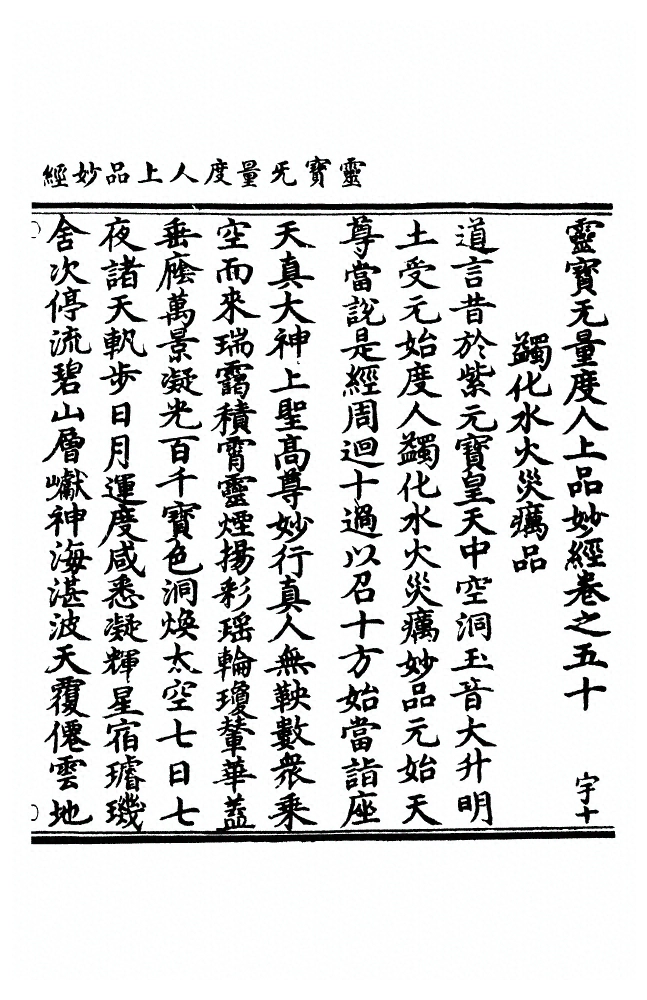 靈寶无量度人上品妙經
靈寶无量度人上品妙經卷之五十 宇十
蠲化水火災癘品
道言昔於紫元寶皇天中空洞玉音大升明
土受元始度人蠲化水火災癘妙品元始天
尊當說是經周迴十過以召十方始當詣座
天真大神上聖高尊妙行真人無鞅數眾乘
空而來瑞靄積霄靈煙揚彩瑶輪瓊輦華蓋
垂廕萬景凝光百千寶色洞煥太空七日七
夜諸天軌步日月運度咸悉凝輝星宿璿璣
舍次停流碧山層巘神海湛波天覆僊雲地